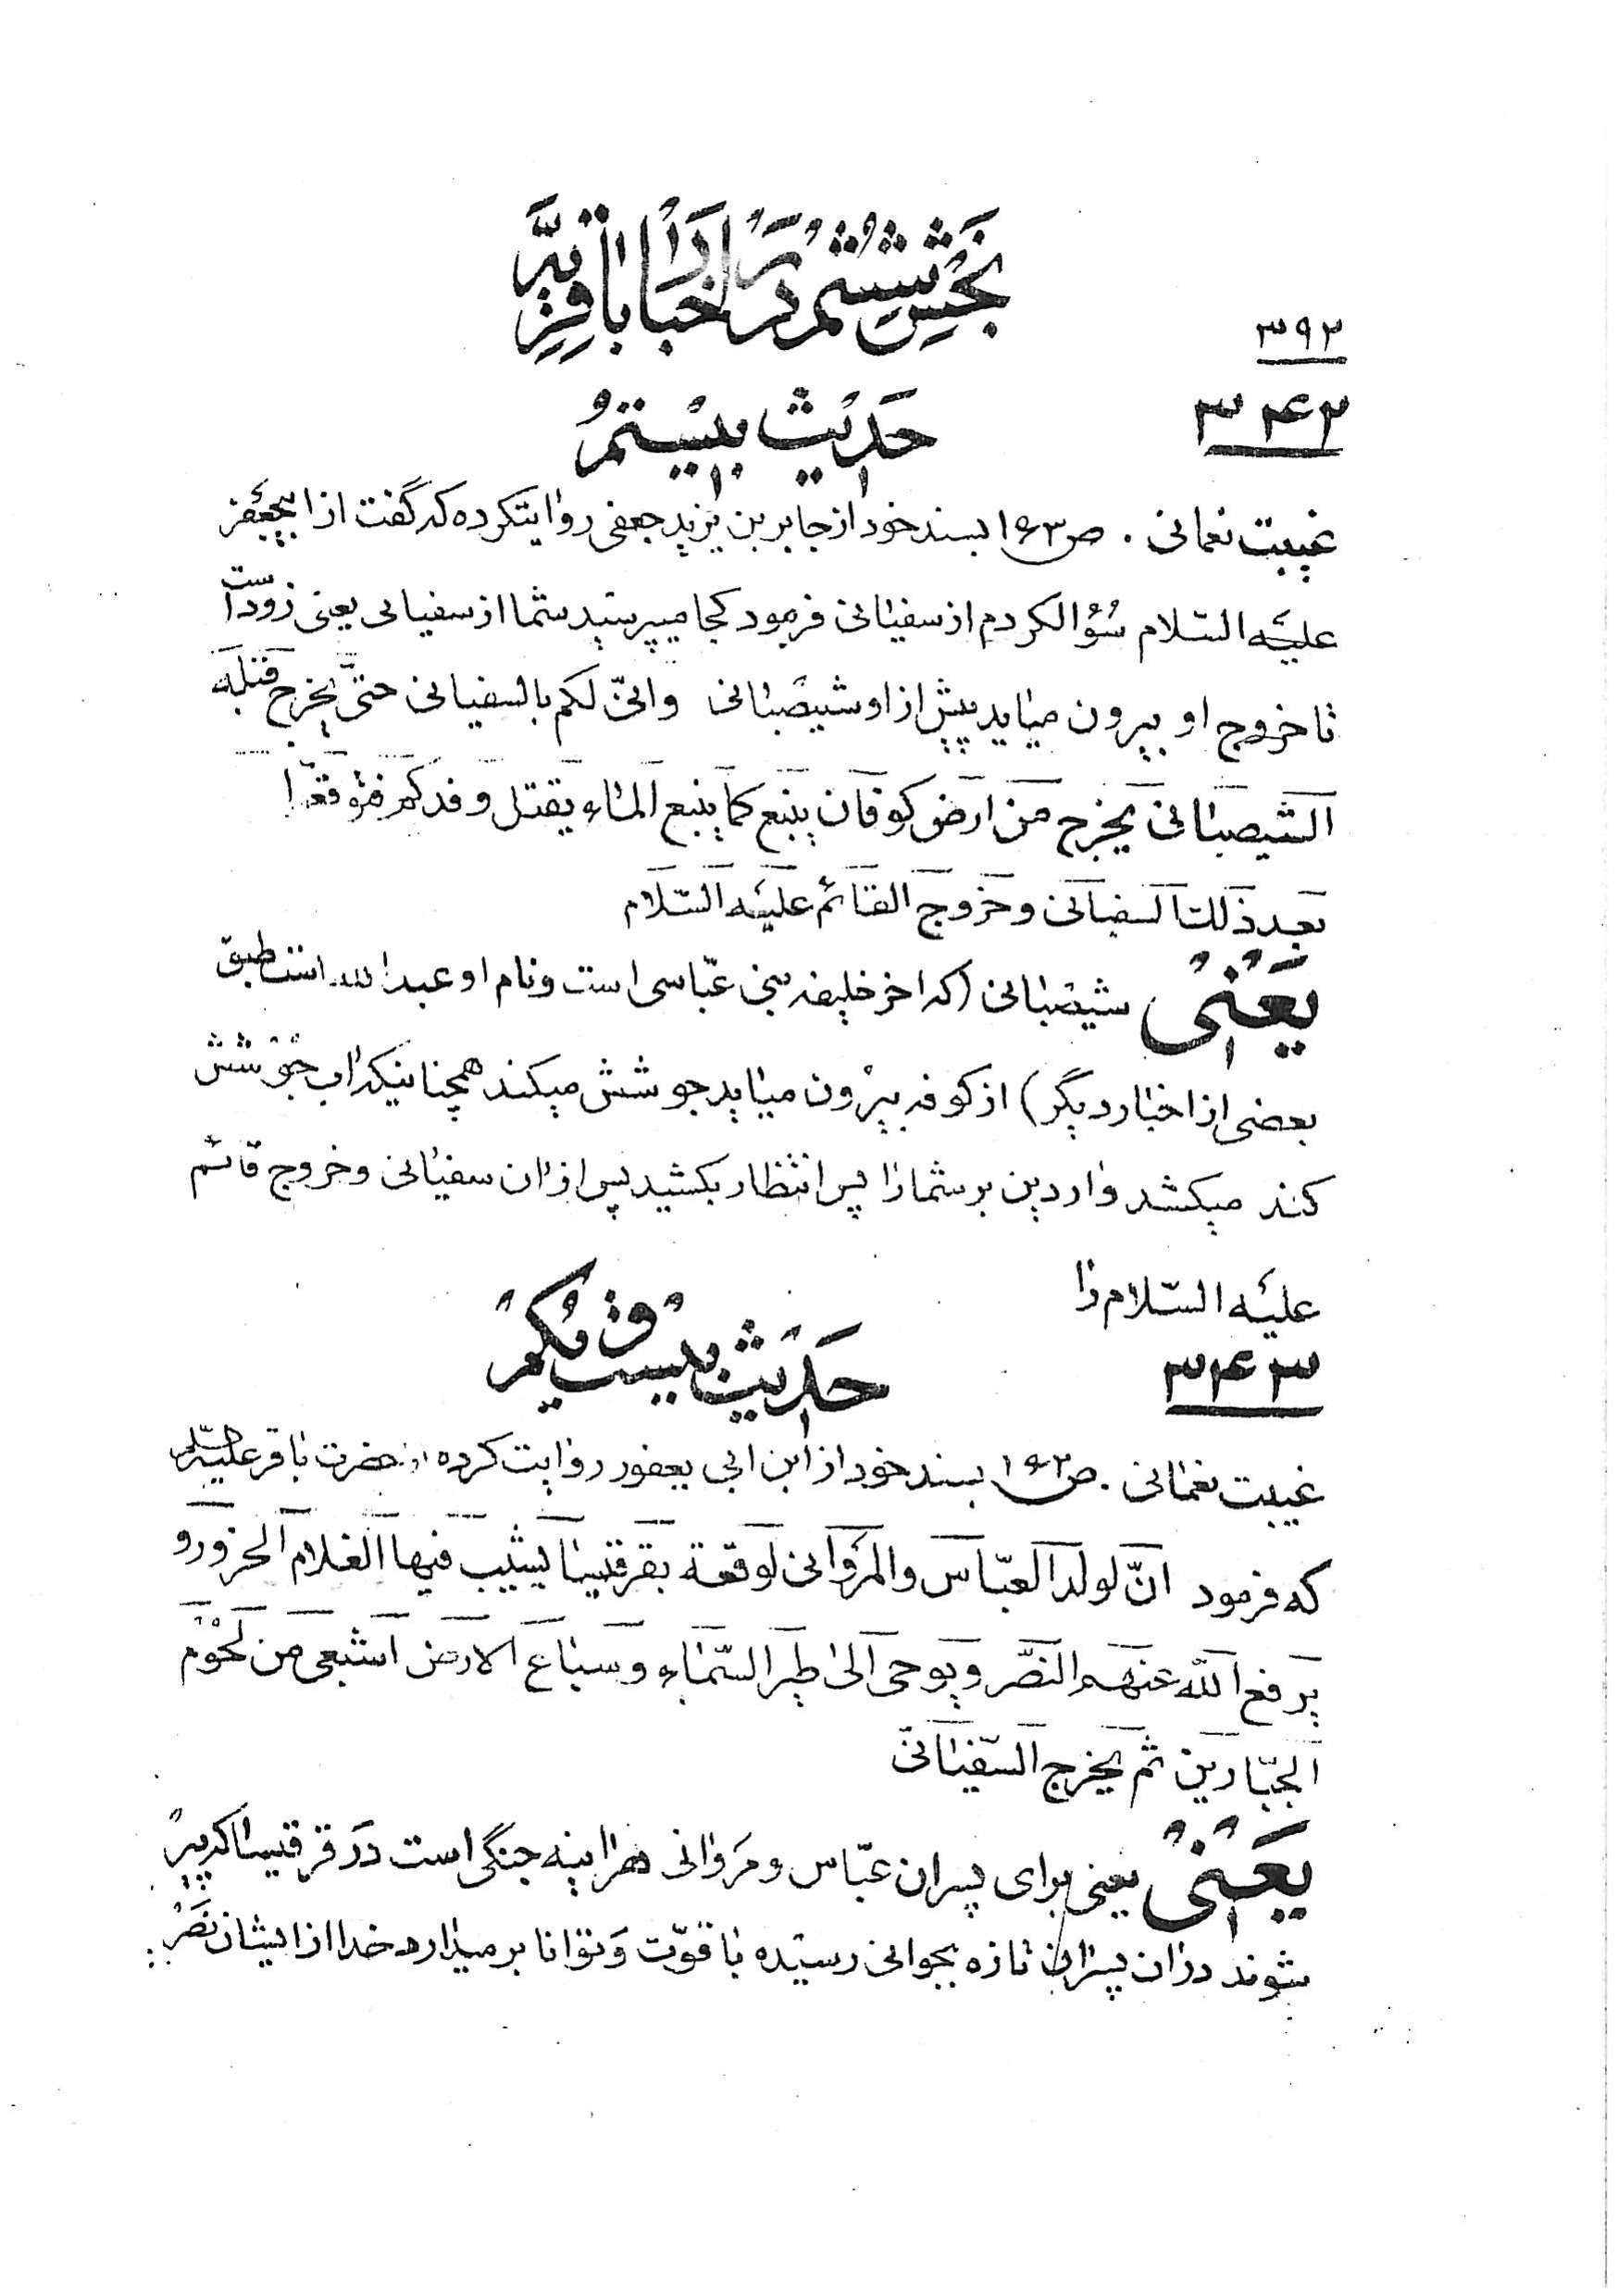 بخش ششم در اخبار باقریه
۳۹۲
۳۴۲
حدیث بیستم
غیبت نعمانی . ص ۱۶۳ بسند خود از جابر بن یزید جعفی روایتکرده که گفت از ابیجعفر
علیه السّلام سُؤالکردم از سفیانی فرمود کجا میپرسید شما از سفیانی یعنی زود است
تا خروج او بیرون میاید پیش از او شیصبانی وانّی لکم بالسفیانی حتّی یخرج قبله
الشیصبانی یخرج من ارض کوفان ینبع کما ینبع الماء یقتل وفدکم فتوقّعوا
بعد ذلک السفیانی وخروج القائم علیه السّلام
یعنی شیصبانی (که اخر خلیفه بنی عبّاسی است و نام او عبدالله است طبق
بعضی از اخبار دیگر) از کوفه بیرون میاید جوشش میکند همچنانیکه اب جوشش
کند میکشد واردین بر شما را پس انتظار بکشید پس از ان سفیانی و خروج قائم
علیه السّلام را
۳۴۳
حدیث بیست و یکم
غیبت نعمانی . ص ۱۶۲ بسند خود از ابن ابی یعفور روایت کرده از حضرت باقر علیه السّلم
که فرمود انّ لولد العبّاس والمروانی لوقعة بقرقیسا یشیب فیها الغلام الحزور و
یرفع الله عنهم النصر و یوحی الی طیر السّماء و سباع الارض اشبعی من لحوم
الجبّارین ثم یخرج السّفیانیّ
یعنی یعنی برای پسران عبّاس و مروانی هراینه جنگی است در قرقیسا که پیر
شوند در ان پسران تازه بجوانی رسیده با قوّت و توانا بر میدارد خدا از ایشان نصر